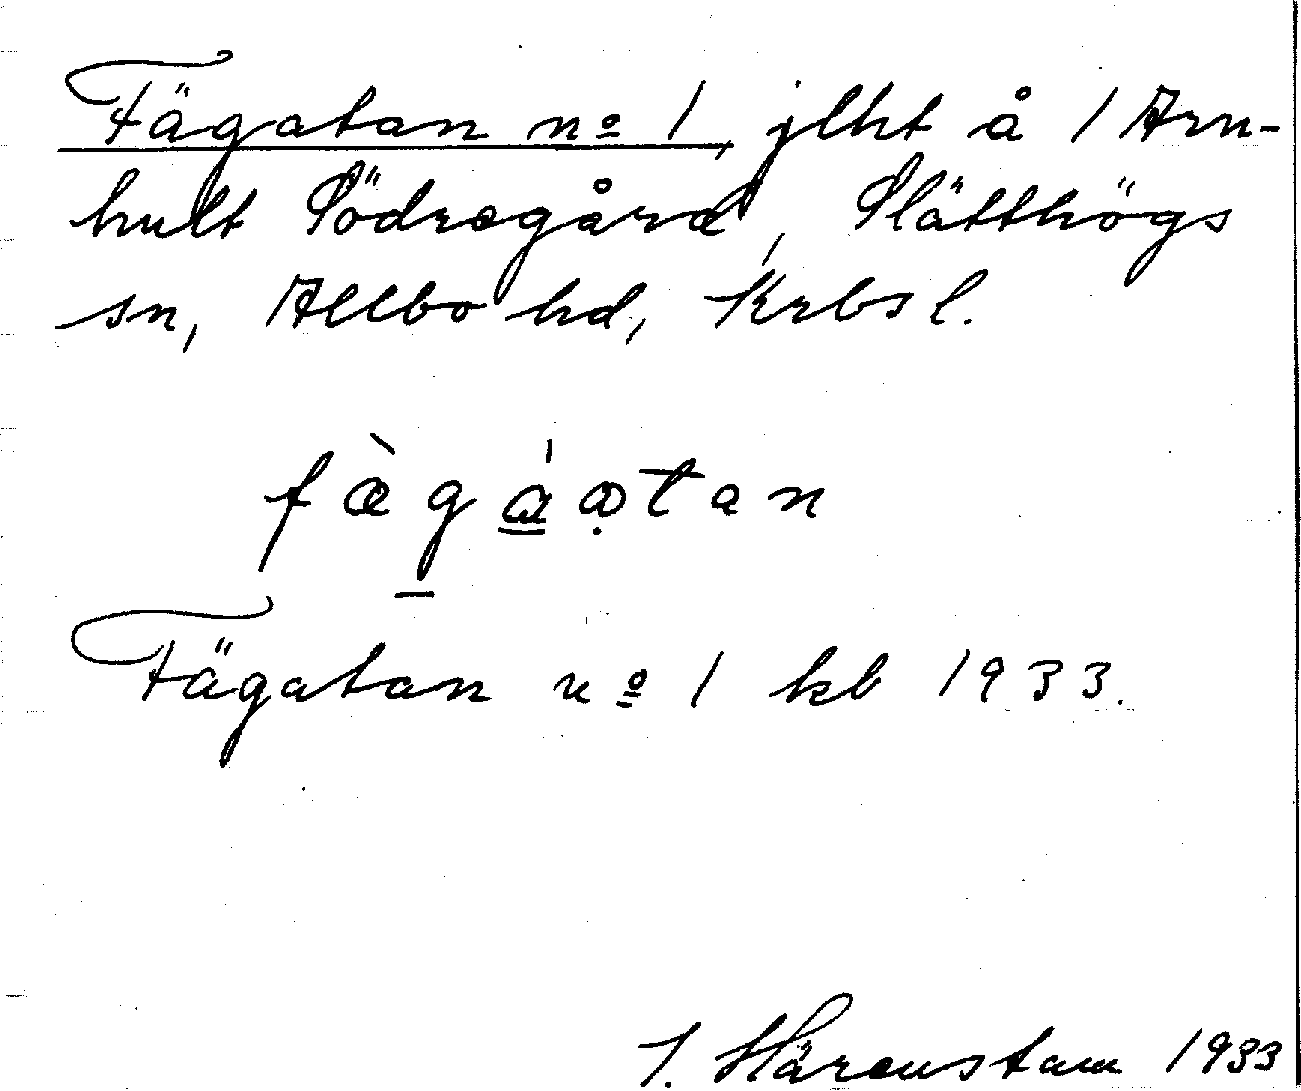 Fägatan nº 1, jlht å 1 Arn-
hult Södregård, Slätthögs
sn, Allbo hd, Krbs l.
Fägatan nº 1 kb 1933.
J. Härenstam 1933